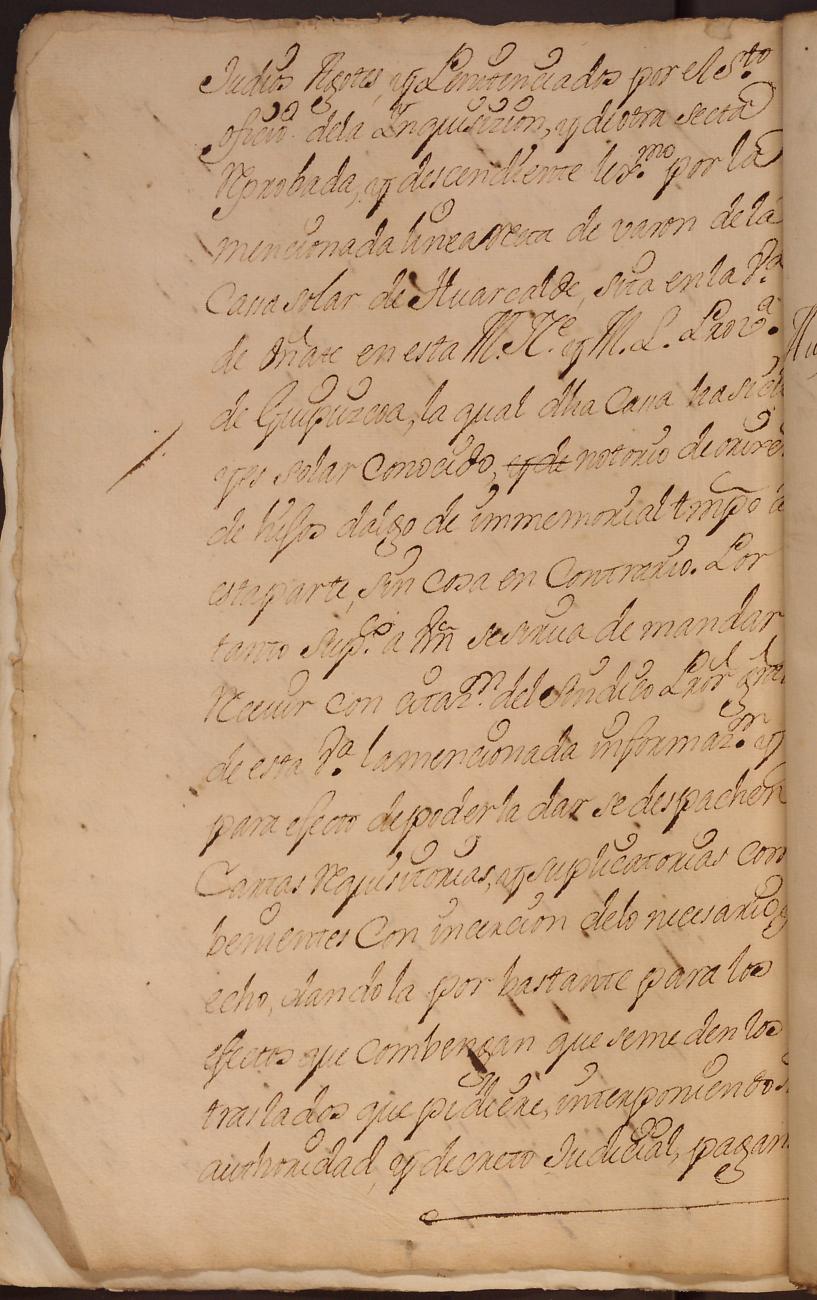 Judios Agotes, y Penitenciados por el S.to
oficio dela Inquisizion, y de otra secta
Reprobada, y descendiente lex.mo por la
mencionada linea Recta de varon de la
Cassa solar de Huarcalde, sita en la V.a
de Oñate en esta M. N.e y M. L. Prov.a
de Guipuzcoa, la qual dha Cassa ha sido
y es solar Conocido, y de notorio de orixen
de hijos dalgo de immemorial tmpo a
esta parte, sin cosa en Contrario. Por
tanto Sup.co a Vm se sirua de mandar
Reciuir con citaz.n del Sindico Pror gral
de esta V.a la mencionada informaz.n y
para efecto de poderla dar se despachen
Cartas Requisitorias, y suplicatorias com
benientes Con incercion delo necesario,
echo, dandola por bastante para los
efectos que combengan que seme den los
traslados que pidiere, interponiendo s
authoridad, y decreto Judicial, pagan